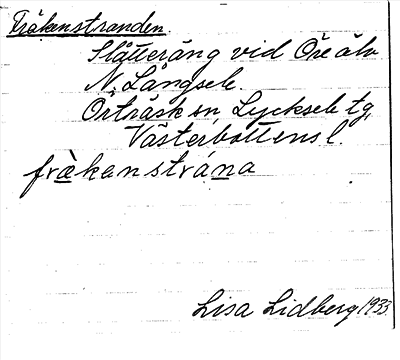 Fräkenstranden.
Slåtteräng vid Öre älv
N. Långsele.
Örträsk sn, Lycksele tg,
Västerbottens l.
fräkenstrána
Lisa Lidberg 1933.